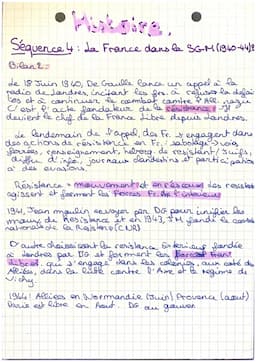 Histoire.
Séquence 4 : La France dans la SGM (1940-44)
Bilan 2 :
Le 18 Juin 1940, De Gaulle lance un appel à la
radio de Londres, incitant les frs à refuser la défai-
tes et à continuer le combat contre l'All.
C'est l'acte fondateur de la résistance.
devient le chef de la France Libre depuis Londres.
Le lendemain de l'appel, des Frs s'engagent dans
des actions de résistance en Fr. : sabotage
ferrées, renseignement, héberg de resistant / Juifs,
diffu d'info, journaux clandestins et participation
à des évasions.
Résistance = mouvement et en réseaux des resistes
agissent et forment les Forces Fr. de l'intérieur
1941, Jean moulin envoyer par DG pour unifier les
mouvs de Resistance et en 1943, JM fonde le conseil
national de la Resistance (CNR)
D'autre choisissent la resistance Extérieur fondée
à Londres par DG et forment les Forces Fran
Libres, qui s'engage dans les colonies, aux coté des
Alliées, dans la lutte contre l'Axe et le régime de
Vichy.
1944 : Alliées en Normandie (Juin) Provence (août)
Paris est libre en Aout. DG au gouver